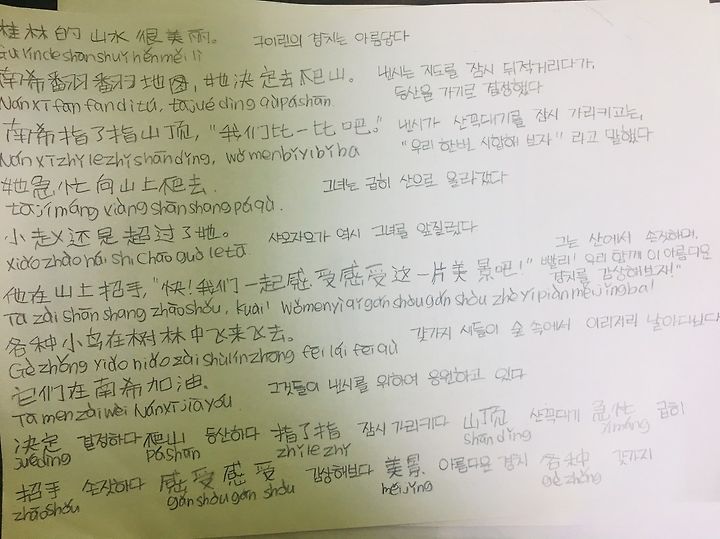 桂林的山水很美丽。 구이린의 경치는 아름답다
Guìlíndeshānshuǐhěnměilì
南希番羽番羽地图, 她决定去爬山。 낸시는 지도를 잠시 뒤적거리다가,
등산을 가기로 결정했다
Nánxīfānfāndìtú, tājuédìngqùpáshān.
南希指了指山顶, "我们比一比吧。" 낸시가 산꼭대기를 잠시 가리키고는,
Nánxīzhǐlezhǐshāndǐng, wǒmenbǐyìbǐba "우리 한번 시합해 보자" 라고 말했다
她急忙向山上爬去. 그녀는 급히 산으로 올라갔다
tājímáng xiàngshānshàngpáqù.
小赵还是超过了她. 샤오자오가 역시 그녀를 앞질렀다
xiǎozhàoháishìchāoguòletā
그는 산에서 손짓하며,
他在山上招手, "快! 我们一起感受感受这一片美景吧!" "빨리! 우리 함께 이 아름다운
경치를 감상해보자!"
Tāzàishānshàngzhāoshǒu, kuài! Wǒmenyìqǐgǎnshòugǎnshòuzhèyípiànměijǐngba!
各种小鸟在树林中飞来飞去。 갖가지 새들이 숲 속에서 이리저리 날아다닌다
Gèzhǒng xiǎoniǎozàishùlínzhōng fēiláifēiqù
它们在南希加油. 그것들이 낸시를 위하여 응원하고 있다
Tāmenzàiwèi Nánxījiāyóu.
决定 결정하다 爬山 등산하다 指了指 잠시 가리키다 山顶 산꼭대기 急忙 급히
juédìng páshān zhǐlezhǐ shāndǐng jímáng
招手 손짓하다 感受感受 감상해보다 美景. 아름다운 경치 各种 갖가지
zhāoshǒu gǎnshòugǎnshòu měijǐng gèzhǒng